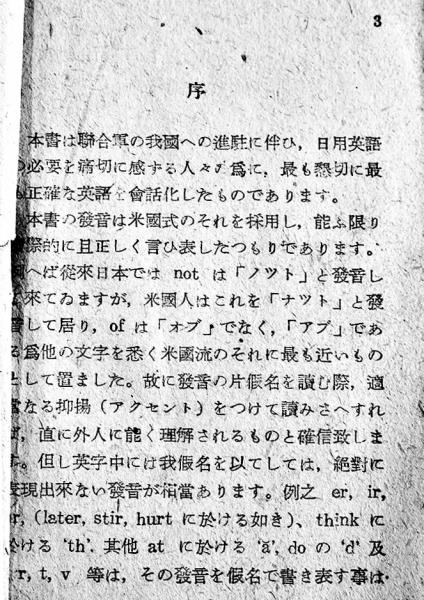 3
序
本書は聯合軍の我國への進駐に伴ひ，日用英語
の必要を痛切に感ずる人々の爲に，最も懇切に最
も正確な英語を會話化したものであります。
本書の發音は米國式のそれを採用し，能ふ限り
際的に且正しく言ひ表したつもりであります。
へば從來日本では not は「ノツト」と發音し
て來てゐますが，米國人はこれを「ナツト」と發
音して居り，of は「オブ」でなく，「アブ」であ
る爲他の文字を悉く米國流のそれに最も近いもの
として置ました。故に發音の片假名を讀む際，適
當なる抑揚（アクセント）をつけて讀みさへすれ
ば，直に外人に能く理解されるものと確信致しま
す。但し英字中には我假名を以てしては，絕對に
表現出來ない發音が相當あります。例之 er, ir,
ur, (later, stir, hurt に於ける如き)、think に
於ける 'th'. 其他 at に於ける 'a', do の 'd' 及
r, t, v 等は，その發音を假名で書き表す事は